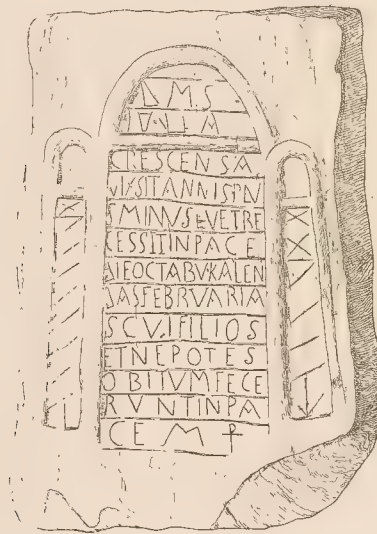 D M S
CRESCENSA
VIXSIT ANNIS PN
S MINVS LV ET RE
CESSIT IN PACE
DIE OCTABV KALEN
DAS FEBRVARIA
S CVI FILIOS
ET NEPOTES
OBITVM FECE
RVNT IN PA
CEM ⳨